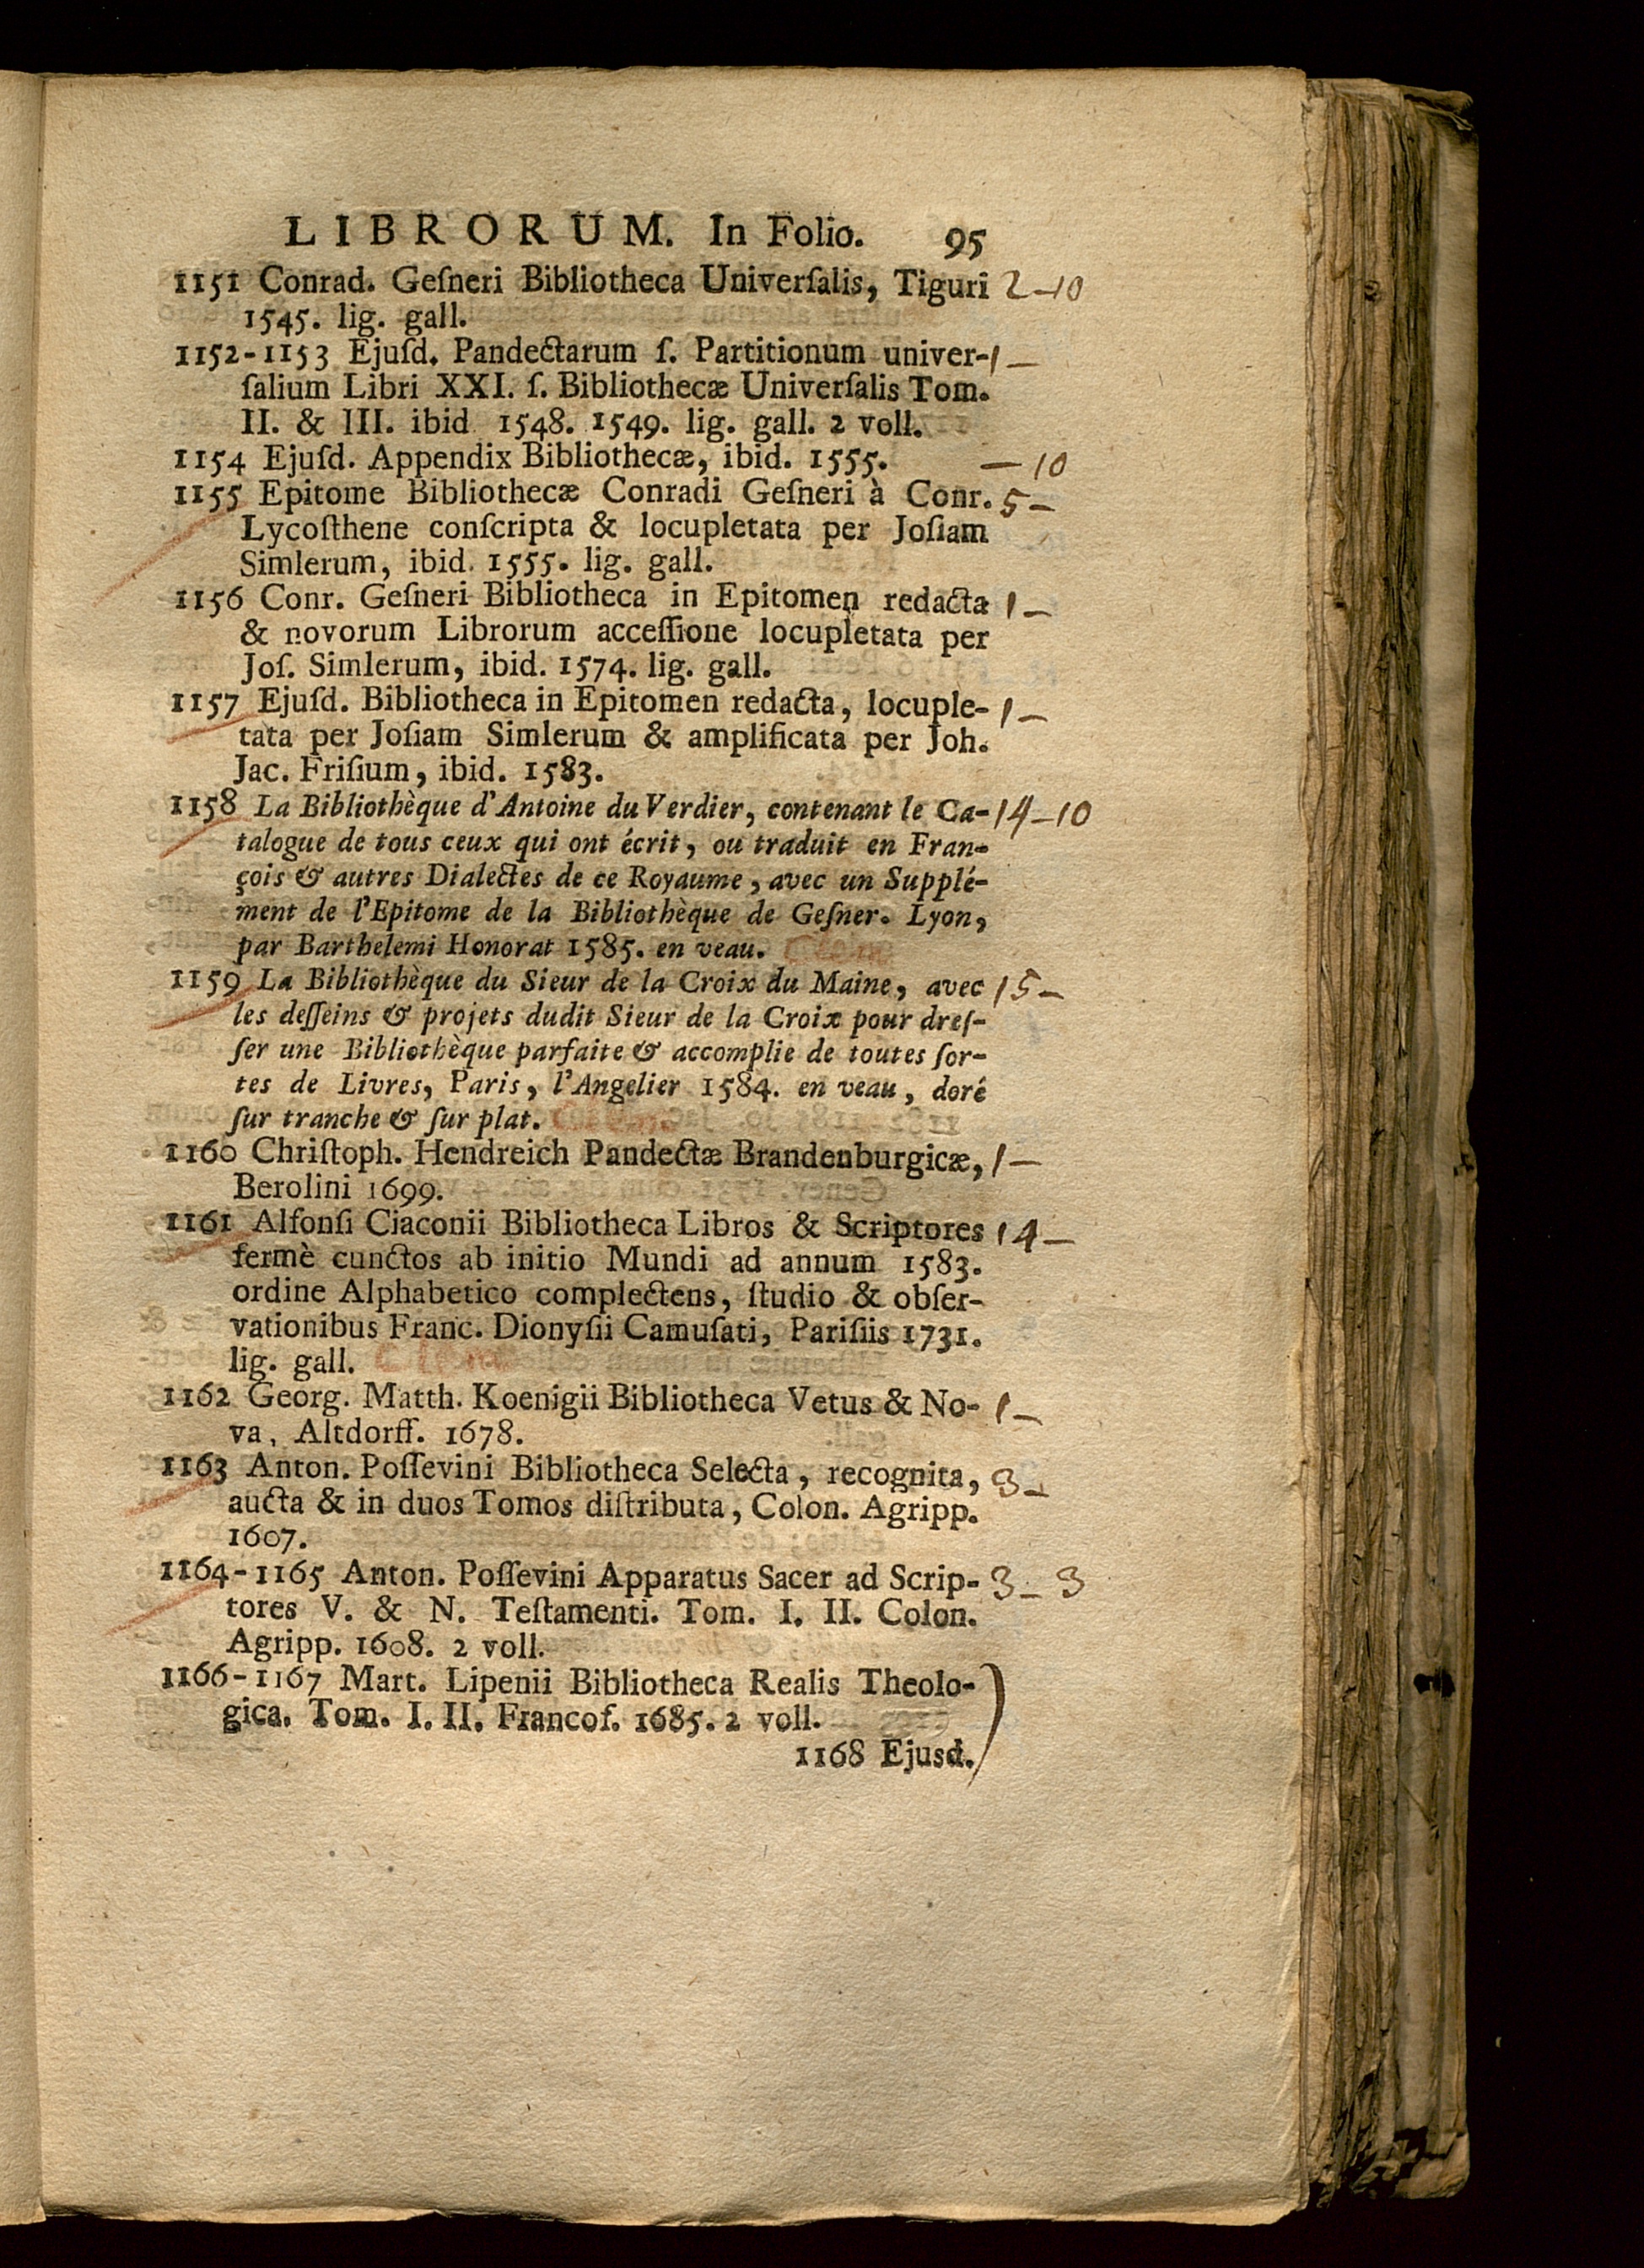 LIBRORUM. In Folio. 95
1151 Conrad. Geſneri Bibliotheca Univerſalis, Tiguri 2-10
1545. lig. gall.
1152-1153 Ejuſd. Pandectarum ſ. Partitionum univer- 1-
ſalium Libri XXI. ſ. Bibliothecæ Univerſalis Tom.
II. & III. ibid 1548. 1549. lig. gall. 2 voll.
1154 Ejuſd. Appendix Bibliothecæ, ibid. 1555. -10
1155 Epitome Bibliothecæ Conradi Geſneri à Conr. 5-
Lycoſthene conſcripta & locupletata per Joſiam
Simlerum, ibid. 1555. lig. gall.
1156 Conr. Geſneri Bibliotheca in Epitomen redacta 1-
& novorum Librorum acceſſione locupletata per
Joſ. Simlerum, ibid. 1574. lig. gall.
1157 Ejuſd. Bibliotheca in Epitomen redacta, locuple- 1-
tata per Joſiam Simlerum & amplificata per Joh.
Jac. Friſium, ibid. 1583.
1158 La Bibliothèque d'Antoine du Verdier, contenant le Ca- 14-10
talogue de tous ceux qui ont écrit, ou traduit en Fran-
çois & autres Dialectes de ce Royaume, avec un Supplé-
ment de l'Epitome de la Bibliothèque de Geſner. Lyon,
par Barthelemi Honorat 1585. en veau.
1159 La Bibliothèque du Sieur de la Croix du Maine, avec 15-
les deſſeins & projets dudit Sieur de la Croix pour dreſ-
ſer une Bibliothèque parfaite & accomplie de toutes ſor-
tes de Livres, Paris, l'Angelier 1584. en veau, doré
ſur tranche & ſur plat.
1160 Chriſtoph. Hendreich Pandectæ Brandenburgicæ, 1-
Berolini 1699.
1161 Alfonſi Ciaconii Bibliotheca Libros & Scriptores 14-
fermè cunctos ab initio Mundi ad annum 1583.
ordine Alphabetico complectens, ſtudio & obſer-
vationibus Franc. Dionyſii Camuſati, Pariſiis 1731.
lig. gall.
1162 Georg. Matth. Koenigii Bibliotheca Vetus & No- 1-
va, Altdorff. 1678.
1163 Anton. Poſſevini Bibliotheca Selecta, recognita, 3-
aucta & in duos Tomos diſtributa, Colon. Agripp.
1607.
1164-1165 Anton. Poſſevini Apparatus Sacer ad Scrip- 3-3
tores V. & N. Teſtamenti. Tom. I. II. Colon.
Agripp. 1608. 2 voll.
1166-1167 Mart. Lipenii Bibliotheca Realis Theolo-
gica. Tom. I. II. Francof. 1685. 2 voll.
1168 Ejusd.